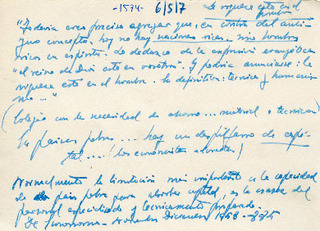 -1574- 6/5/7 La riqueza está en el hombre
"Podría ser preciso agregar que, en contra del anti-
guo concepto, hoy no hay naciones ricas sino hombres
ricos en espíritu. Se deduce de la expresión evangélica
"el reino de Dios está en vosotros". Y podría anunciarse: la
riqueza está en el hombre. La definitiva: técnica y humanis-
mo..."
(Colegio con la necesidad de ahorro... material y técnico)
En países pobres... hay un despilfarro de capi-
tal....! (los economistas
Normalmente la limitación más importante a la capacidad
de un país pobre para absorber capital, es la escasez del
personal especializado y técnicamente preparado.
De Economía - Noviembre Diciembre 1958 - 825